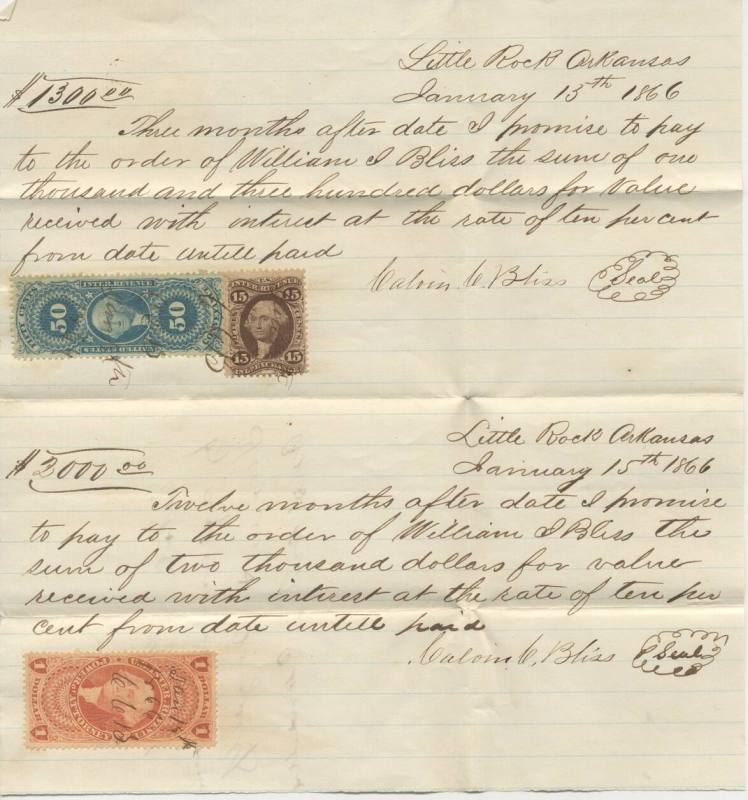 Little Rock Arkansas
$1300.00 January 15th 1866
Three months after date I promise to pay
to the order of William I Bliss the sum of one
thousand and three hundred dollars for value
received with interest at the rate of ten per cent
from date untill paid
Calvin C. Bliss Seal
INTER. REVENUE
50 50
UNITED STATES
U.S.
15 15
INTER. REVENUE
15 15
INLAND EXCHANGE
Little Rock Arkansas
$2000.00 January 15th 1866
Twelve months after date I promise
to pay to the order of William I Bliss the
sum of two thousand dollars for value
received with interest at the rate of ten per
cent from date untill paid
Calvin C. Bliss Seal
1 POWER OF ATTORNEY 1
DOLLAR